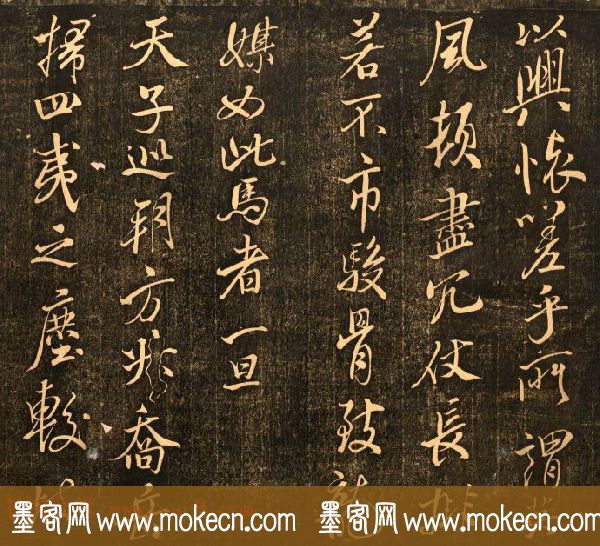 以興懷嗟乎所謂
風頓盡冗仗長
若不市駿骨致龍
媒如此馬者一旦
天子巡朔方喬岳
掃四夷之塵較
墨客网 www.mokecn.com 墨客网 www.mokecn.com